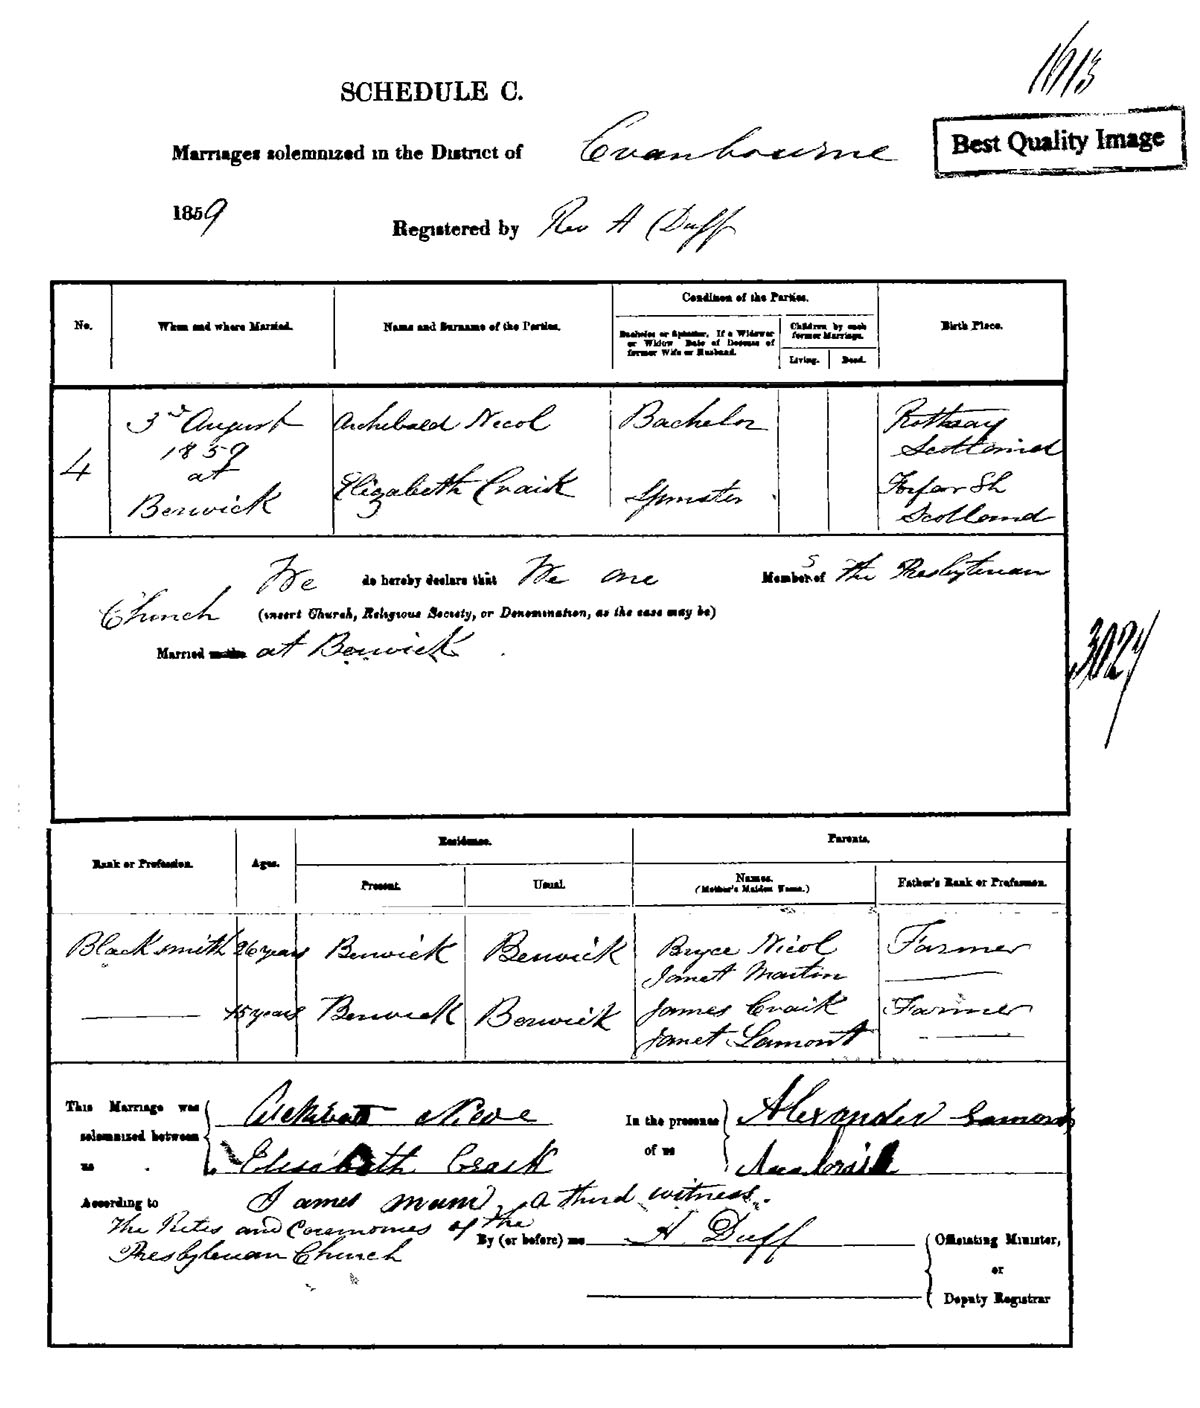 SCHEDULE C.
Best Quality Image
Marriages solemnized in the District of Cranbourne
1859
Registered by Rev A Duff
No.
When and where Married.
Name and Surname of the Parties.
Condition of the Parties.
Bachelor or Spinster. If a Widower or Widow Date of Decease of former Wife or Husband.
Children by each former Marriage.
Living.
Dead.
Birth Place.
4
3rd August
1859
at
Berwick
Archibald Nicol
Elizabeth Craik
Bachelor
Spinster
Rothsay
Scotland
Forfar Sh
Scotland
We do hereby declare that We are Members of the Presbyterian
Church (insert Church, Religious Society, or Denomination, as the case may be)
Married in the at Berwick
3024
Rank or Profession.
Ages.
Residence.
Present.
Usual.
Parents.
Names.
(Mother's Maiden Name.)
Father's Rank or Profession.
Blacksmith 26 years Berwick Berwick Bryce Nicol Farmer
Janet Martin
years Berwick Berwick James Craik Farmer
Janet Lamont
This Marriage was solemnized between us
Archibald Nicol
Elisabeth Craik
In the presence of us
Alexander Lamont
According to
James , a third witness.
The Rites and Ceremonies of the
Presbyterian Church
By (or before) me A. Duff
Officiating Minister,
or
Deputy Registrar